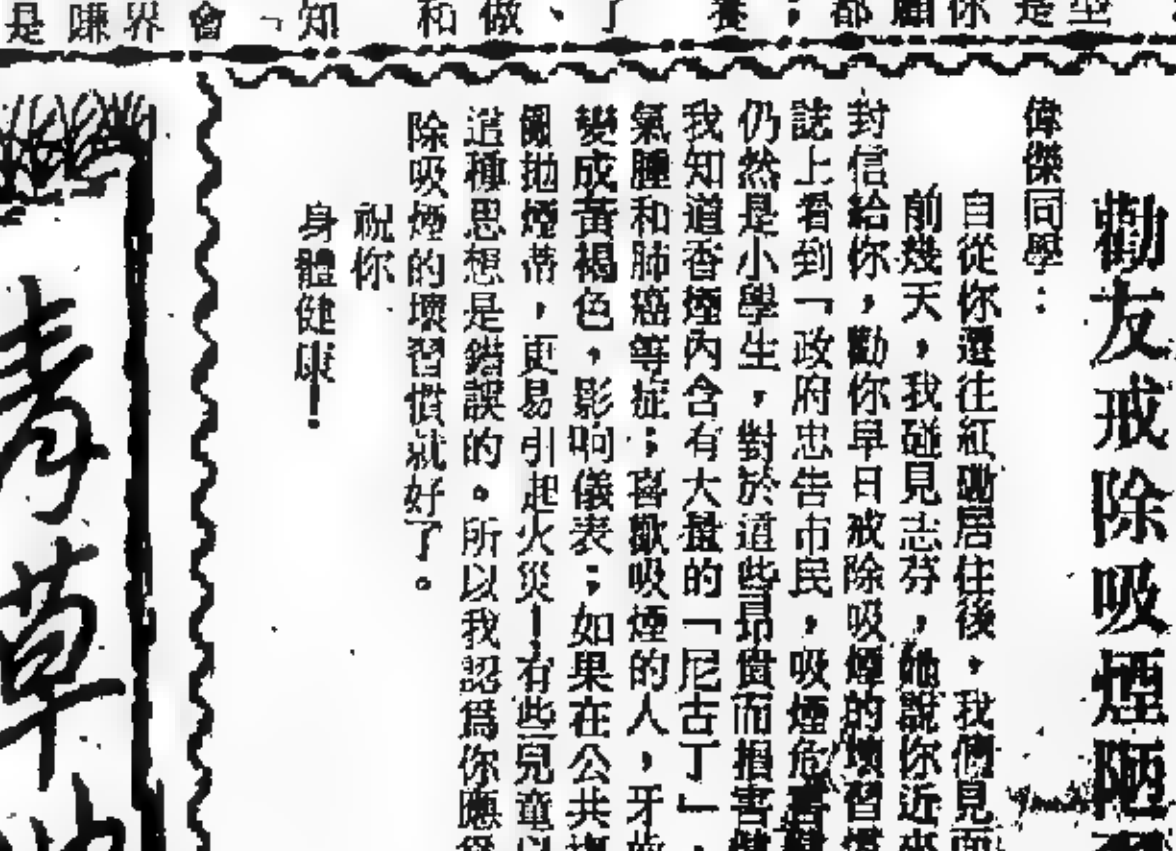 勸友戒除吸煙陋
偉傑同學：
自從你遷往紅磡居住後，我們見面
前幾天，我碰見志芬，她說你近來
封信給你，勸你早日戒除吸煙的壞習慣
誌上看到「政府忠告市民，吸煙危害健
仍然是小學生，對於這些昂貴而損害健
我知道香煙內含有大量的「尼古丁」，
氣腫和肺癌等症；喜歡吸煙的人，牙齒
變成黃褐色，影响儀表；如果在公共場
亂拋煙蒂，更易引起火災！有些兒童以
這種思想是錯誤的。所以我認爲你應
除吸煙的壞習慣就好了。
祝你
身體健康！
青草
型是
你顧都；
養
了、做和
知「會界賺是